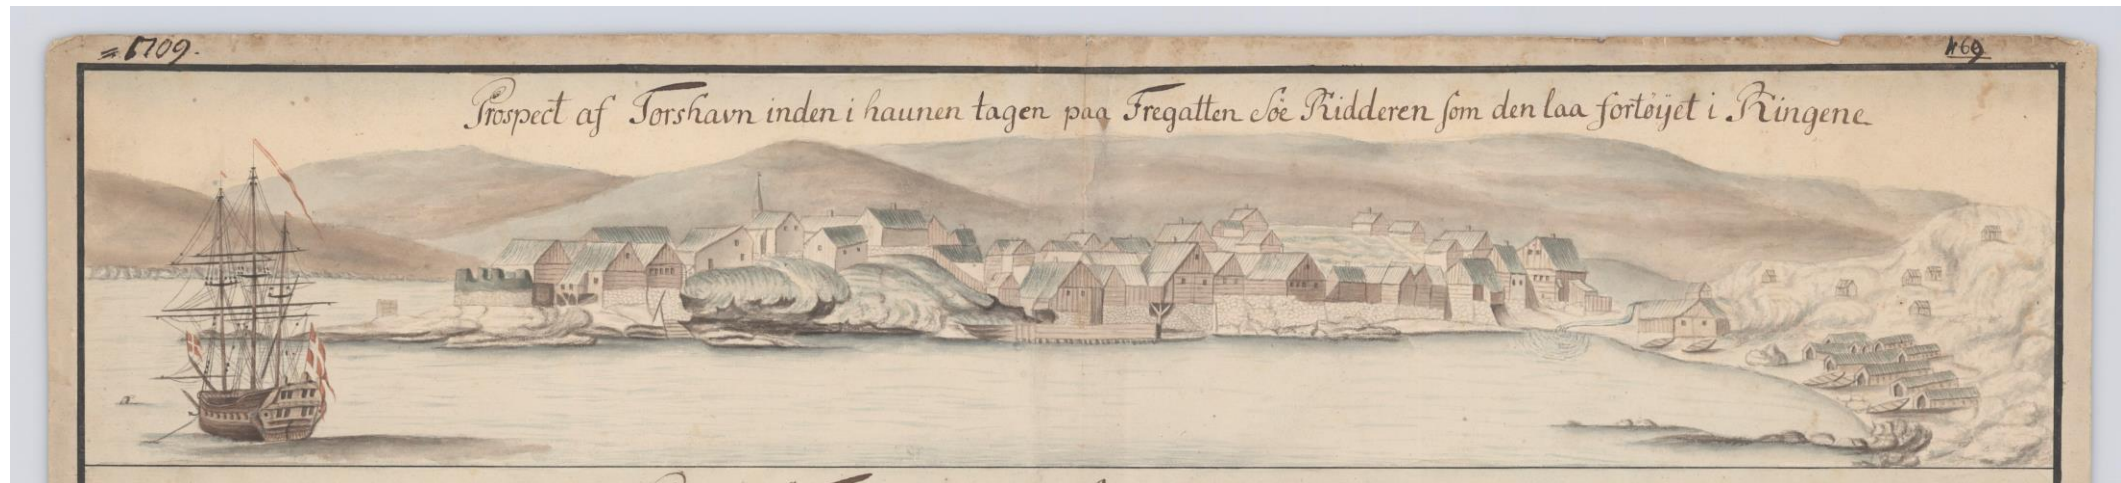 = 1709.
469
Prospect af Torshavn inden i haunen tagen paa Fregatten Söe Ridderen som den laa fortöÿet i Ringene